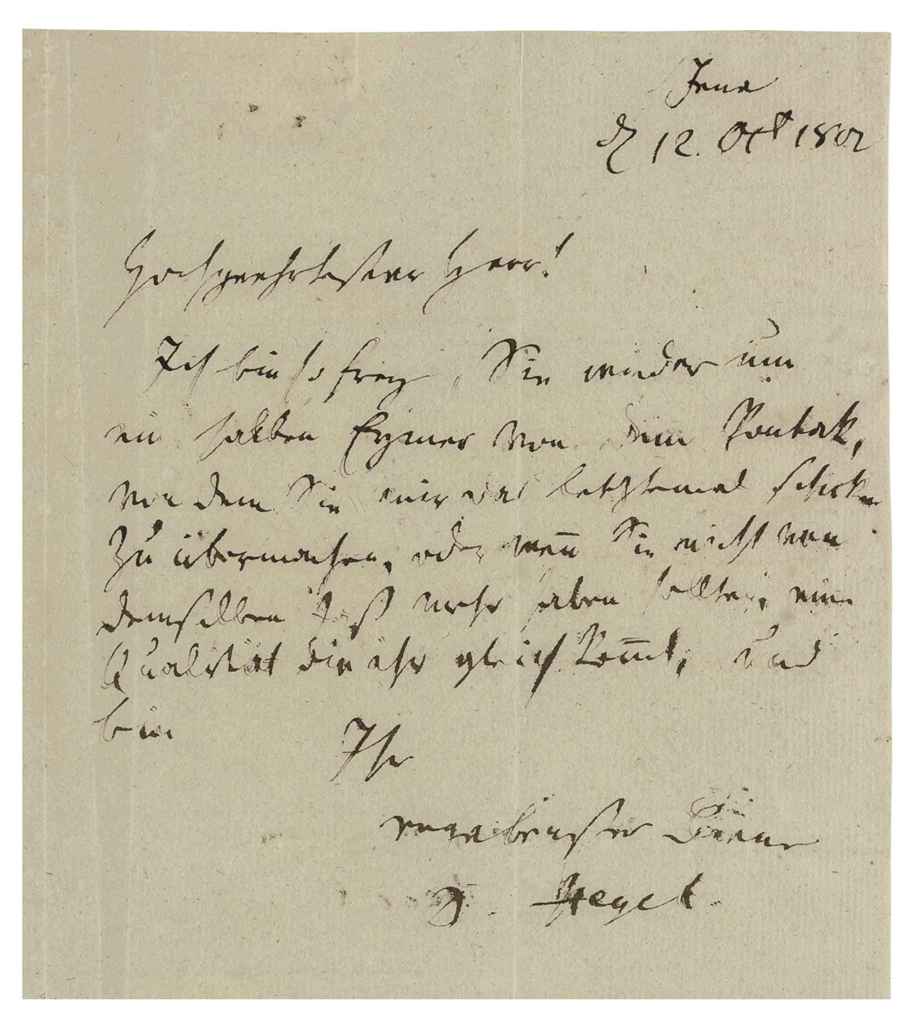 Jena
d 12. Oct 1802
Hochgeehrtester Herr!
Ich bin so frey, Sie wieder um
ein halben Eymer von dem Pontak,
von dem Sie mir das letztemal schickten
zu übermachen, oder wenn Sie nicht von
demselben Faß mehr haben sollten, eine
Qualität die ihr gleich kommt, und
bin
Ihr
ergebenster Diener
D. Hegel